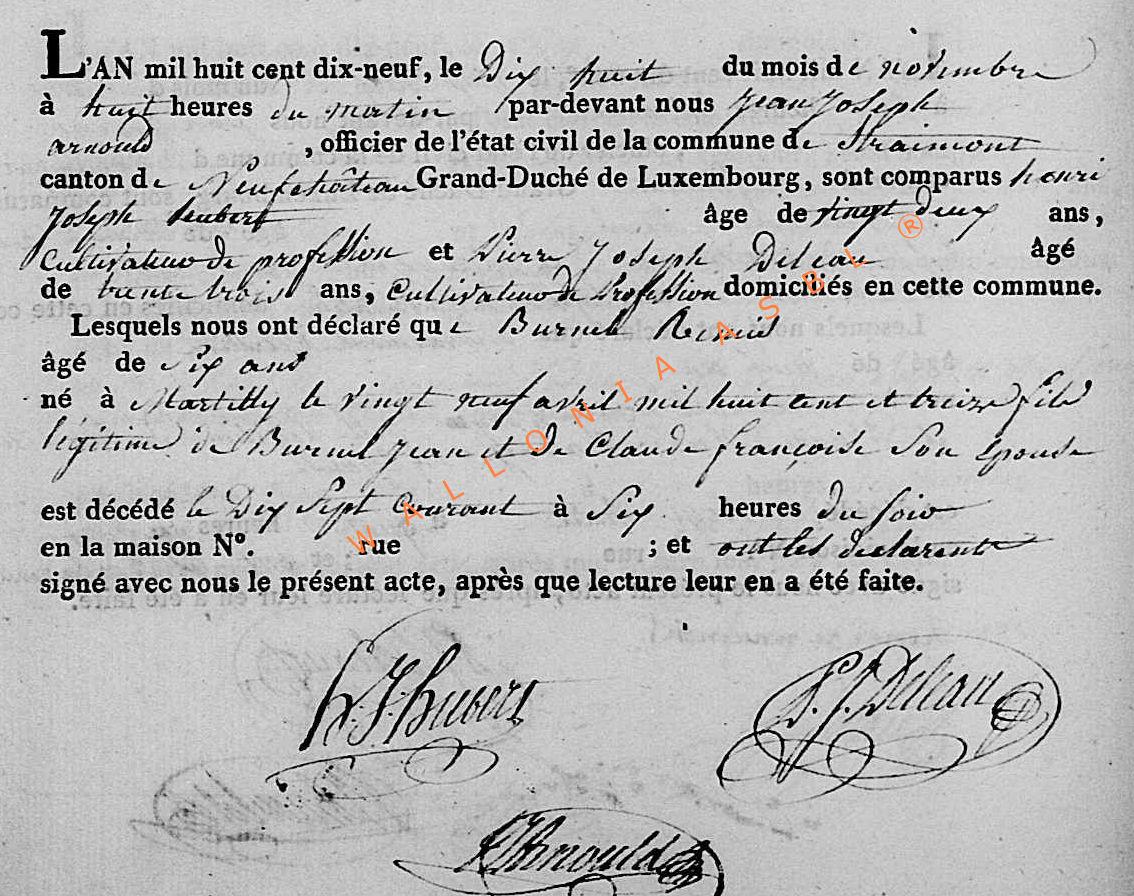 L'AN mil huit cent dix-neuf, le Dix huit du mois de novembre
à huit heures du matin par-devant nous jean joseph
arnould , officier de l'état civil de la commune de Straimont
canton de Neufchâteau Grand-Duché de Luxembourg, sont comparus henri
joseph hubert âge de vingt deux ans,
Cultivateur de profession et Pierre Joseph Deleau âgé
de trente trois ans, Cultivateur de Profession domiciliés en cette commune.
Lesquels nous ont déclaré que Burnel Remis
âgé de Six ans
né à Martilly le vingt neuf avril mil huit cent et treize fils
légitime de Burnel jean et de Claude françoise Son épouse
est décédé le Dix Sept Courant à Six heures du soir
en la maison N°. rue ; et ont les declarents
signé avec nous le présent acte, après que lecture leur en a été faite.
WALLONIA ASBL ®
h. J. hubert P. J. Deleau
JJArnould